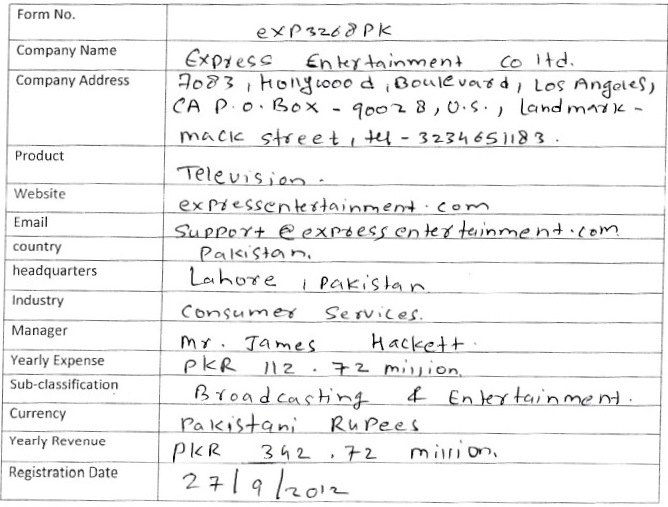 Form No.
exp3268PK
Company Name
Express Entertainment co ltd.
Company Address
7083, Hollywood, Boulevard, Los Angeles,
CA P.O.Box - 90028, U.S., Landmark -
mack street, tel - 3234651183.
Product
Television.
Website
expressentertainment.com
Email
Support@expressentertainment.com
country
Pakistan.
headquarters
Lahore, Pakistan
Industry
Consumer Services.
Manager
Mr. James Hackett.
Yearly Expense
PKR 112.72 million.
Sub-classification
Broadcasting & Entertainment.
Currency
Pakistani Rupees
Yearly Revenue
PKR 342.72 million.
Registration Date
27/9/2012